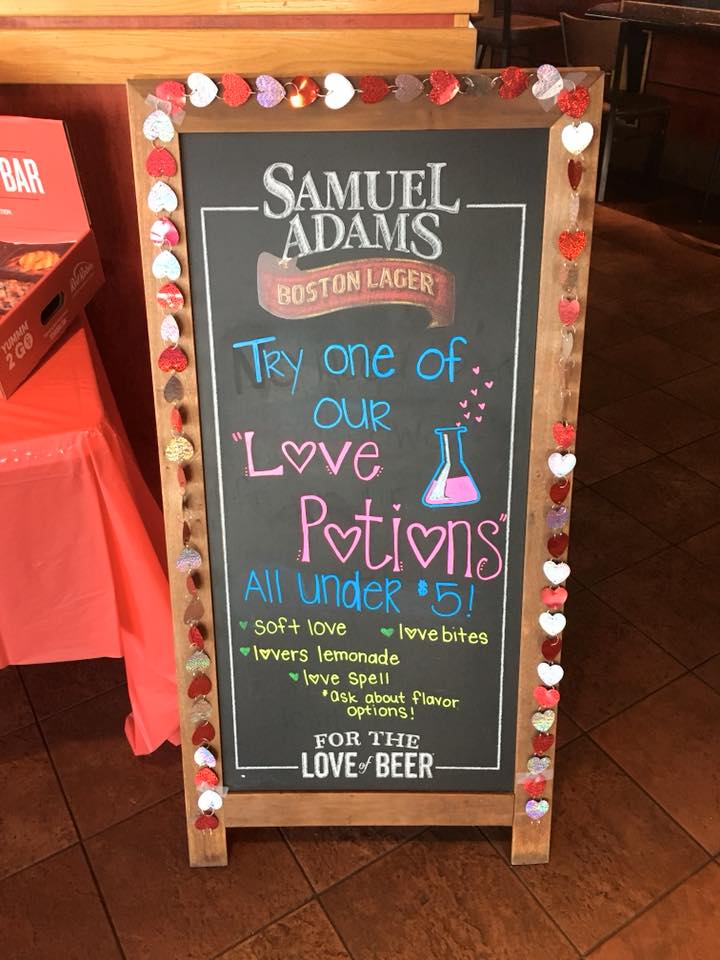 BAR
YUMMM
2 GO
Red Robin
SAMUEL
ADAMS
BOSTON LAGER
Try one of
our
"Love
Potions"
All under $5!
soft love love bites
lovers lemonade
love spell
*ask about flavor
options!
FOR THE
LOVE of BEER